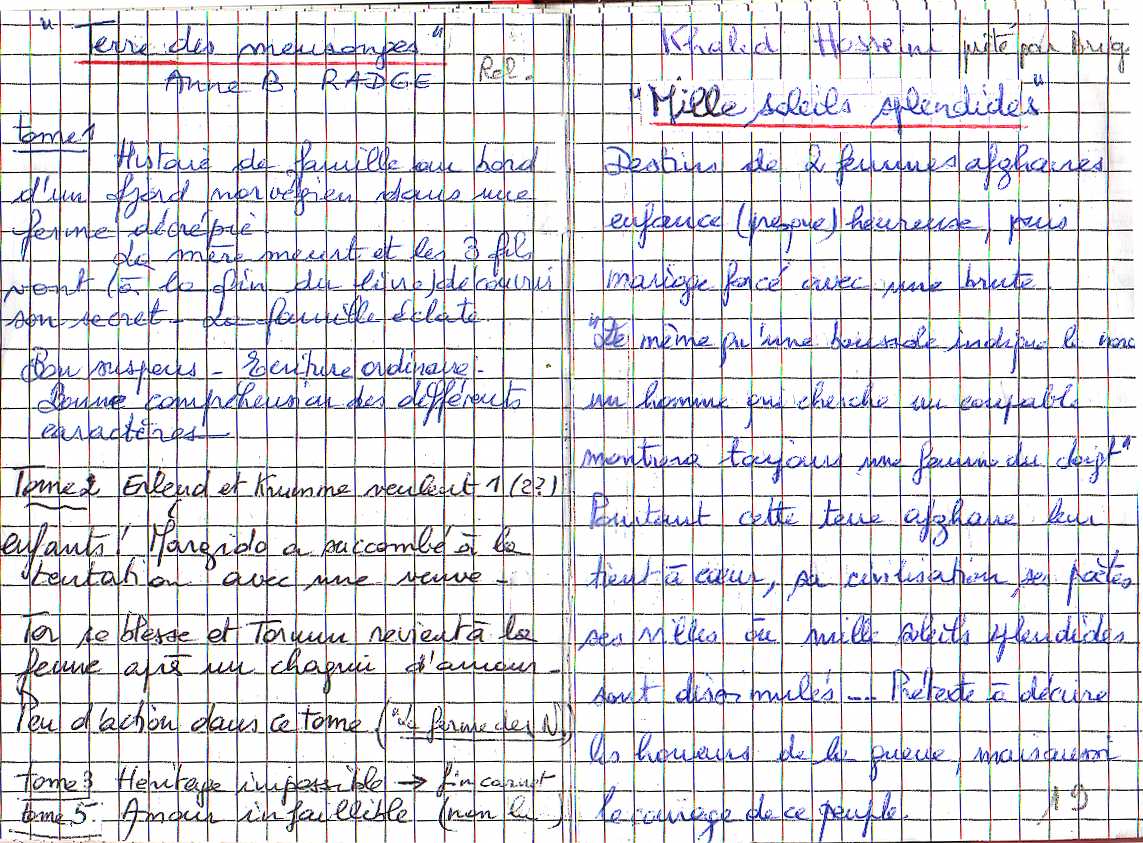 "Terre des mensonges"
Anne B. RADGE Rel.
tome 1
Histoire de famille au bord
d'un fjord norvégien dans une
ferme décrépie.
La mère meurt et les 3 fils
vont (à la fin du livre) découvrir
son secret - La famille éclate.
Bon suspens - Ecriture ordinaire -
Bonne compréhension des différents
caractères -
Tome 2 Erlend et Krumme veulent 1 (2?)
enfants! Margido a succombé à la
tentation avec une veuve -
Tor se blesse et Torunn revient à la
ferme après un chagrin d'amour -
Peu d'action dans ce tome ("La ferme des N")
tome 3 Héritage impossible → fin carnet
tome 5. Amour infaillible (non lu)
Khaled Hosseini prêté par Brig
"Mille soleils splendides"
Destins de 2 femmes afghanes
enfance (presque) heureuse, puis
mariage forcé avec une brute.
"De même qu'une boussole indique le nord
un homme qui cherche un coupable
montrera toujours une femme du doigt"
Pourtant cette terre afghane leur
tient à cœur, sa civilisation, ses poètes
ses villes où mille soleils splendides
sont dissimulés... Prétexte à décrire
les horreurs de la guerre, mais aussi
le courage de ce peuple.
19